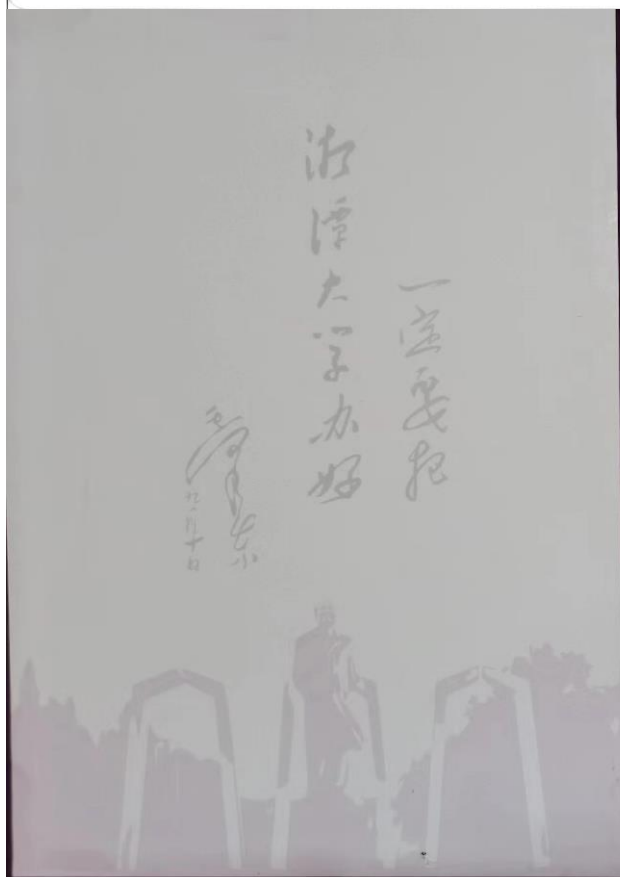 一定要把
湘潭大学办好
毛泽东
九月十日